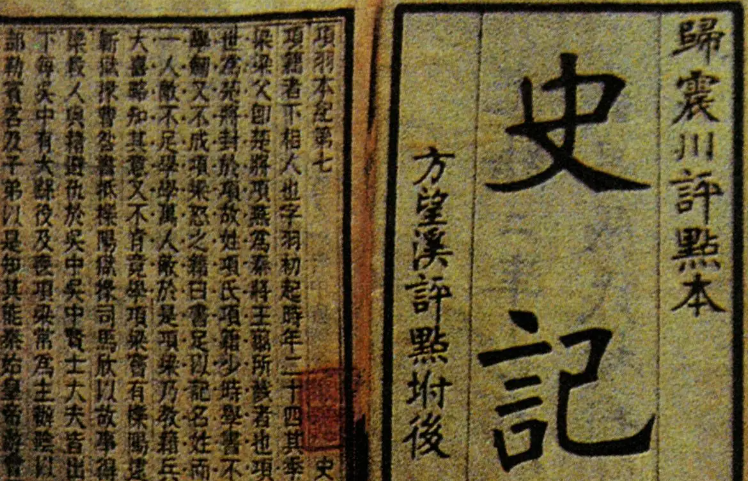 歸震川評點本
史記
方望溪評點坿後
項羽本紀第七 史
項籍者下相人也字羽初起時年二十四其季
梁梁父即楚將項燕爲秦將王翦所戮者也項
世爲楚將封於項故姓項氏項籍少時學書不
學劒又不成項梁怒之籍曰書足以記名姓而
一人敵不足學學萬人敵於是項梁乃教籍兵
大喜略知其意又不肯竟學項梁嘗有櫟陽逮
蘄獄掾曹咎書抵櫟陽獄掾司馬欣以故事得
梁殺人與籍避仇於吳中吳中賢士大夫皆出
下每吳中有大繇役及喪項梁常爲主辦陰以
部勒賓客及子弟以是知其能秦始皇帝游會